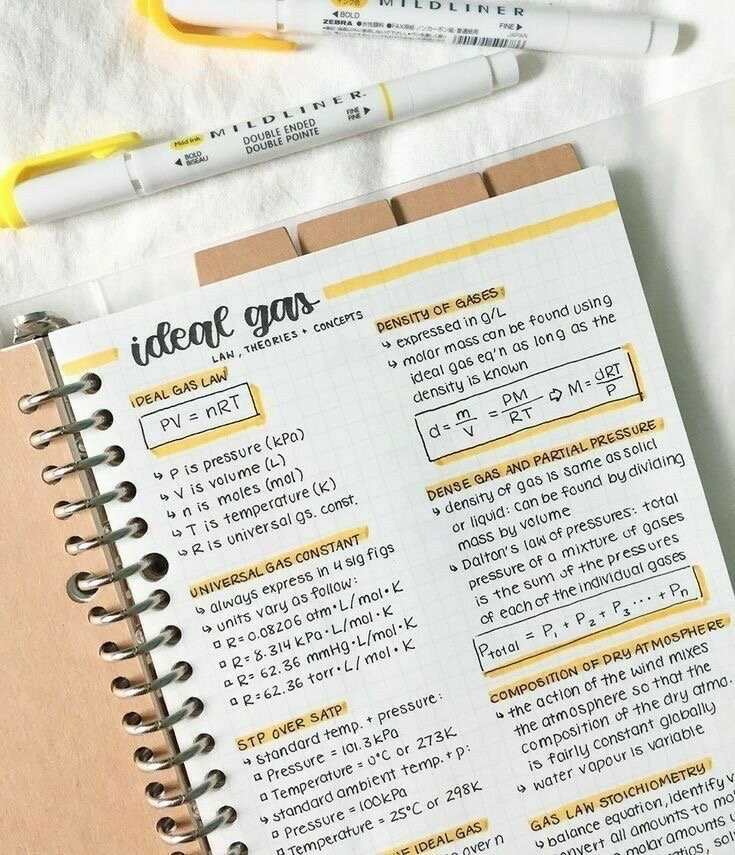 MILDLINER
◀ BOLD
FINE ▶
ZEBRA
JAPAN
MILDLINER
Mild Ink
DOUBLE ENDED
DOUBLE POINTE
◀ BOLD
BISEAU
FINE ▶
FINE
ideal gas
LAW, THEORIES + CONCEPTS
IDEAL GAS LAW
PV = nRT
↳ P is pressure (kPa)
↳ V is volume (L)
↳ n is moles (mol)
↳ T is temperature (K)
↳ R is universal gs. const.
UNIVERSAL GAS CONSTANT
↳ always express in 4 sig figs
↳ units vary as follow:
▫ R= 0.08206 atm•L/mol•K
▫ R= 8.314 kPa•L/mol•K
▫ R= 62.36 mmHg•L/mol•K
▫ R=62.36 torr•L/mol•K
STP OVER SATP
↳ standard temp. + pressure:
▫ Pressure = 101.3 kPa
▫ Temperature = 0°C or 273K
↳ standard ambient temp. + p:
▫ Pressure = 100kPa
▫ Temperature = 25°C or 298K
IDEAL GAS
over n
DENSITY OF GASES
↳ expressed in g/L
↳ molar mass can be found using
ideal gas eq'n as long as the
density is known
d = m/V = PM/RT ⇨ M = dRT/P
DENSE GAS AND PARTIAL PRESSURE
↳ density of gas is same as solid
or liquid: can be found by dividing
mass by volume
↳ Dalton's law of pressures: total
pressure of a mixture of gases
is the sum of the pressures
of each of the individual gases
Ptotal = P₁ + P₂ + P₃ ... + Pn
COMPOSITION OF DRY ATMOSPHERE
↳ the action of the wind mixes
the atmosphere so that the
composition of the dry atma.
is fairly constant globally
↳ water vapour is variable
GAS LAW STOICHIOMETRY
↳ balance equation, identify
convert all amounts to
molar amounts